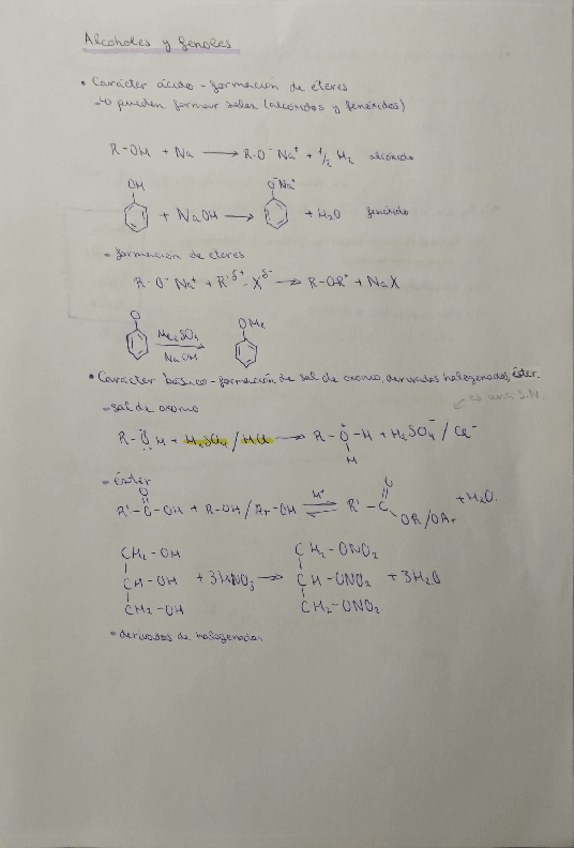 Alcoholes y fenoles
• Carácter ácido - formación de éteres
→ pueden formar sales (alcóxidos y fenóxidos)
R-OH + Na → R-O⁻ Na⁺ + 1/2 H₂ alcóxido
OH O⁻Na⁺
+ NaOH → + H₂O fenóxido
- formación de éteres
R-O⁻ Na⁺ + R'δ⁺-Xδ⁻ → R-OR' + NaX
O OMe
Me₂SO₄
NaOH
• Carácter básico - formación de sal de oxonio, derivados halogenados, éster.
es una S.N.
- sal de oxonio
R-ÖH + H₂SO₄/HCl → R-O⁺-H + H₂SO₄⁻/Cl⁻
H
- éster
O O
R'-C-OH + R-OH/Ar-OH ⇌ H⁺ R'-C + H₂O
OR/OAr
CH₂-OH CH₂-ONO₂
CH-OH + 3HNO₃ → CH-ONO₂ + 3H₂O
CH₂-OH CH₂-ONO₂
- derivados de halogenados